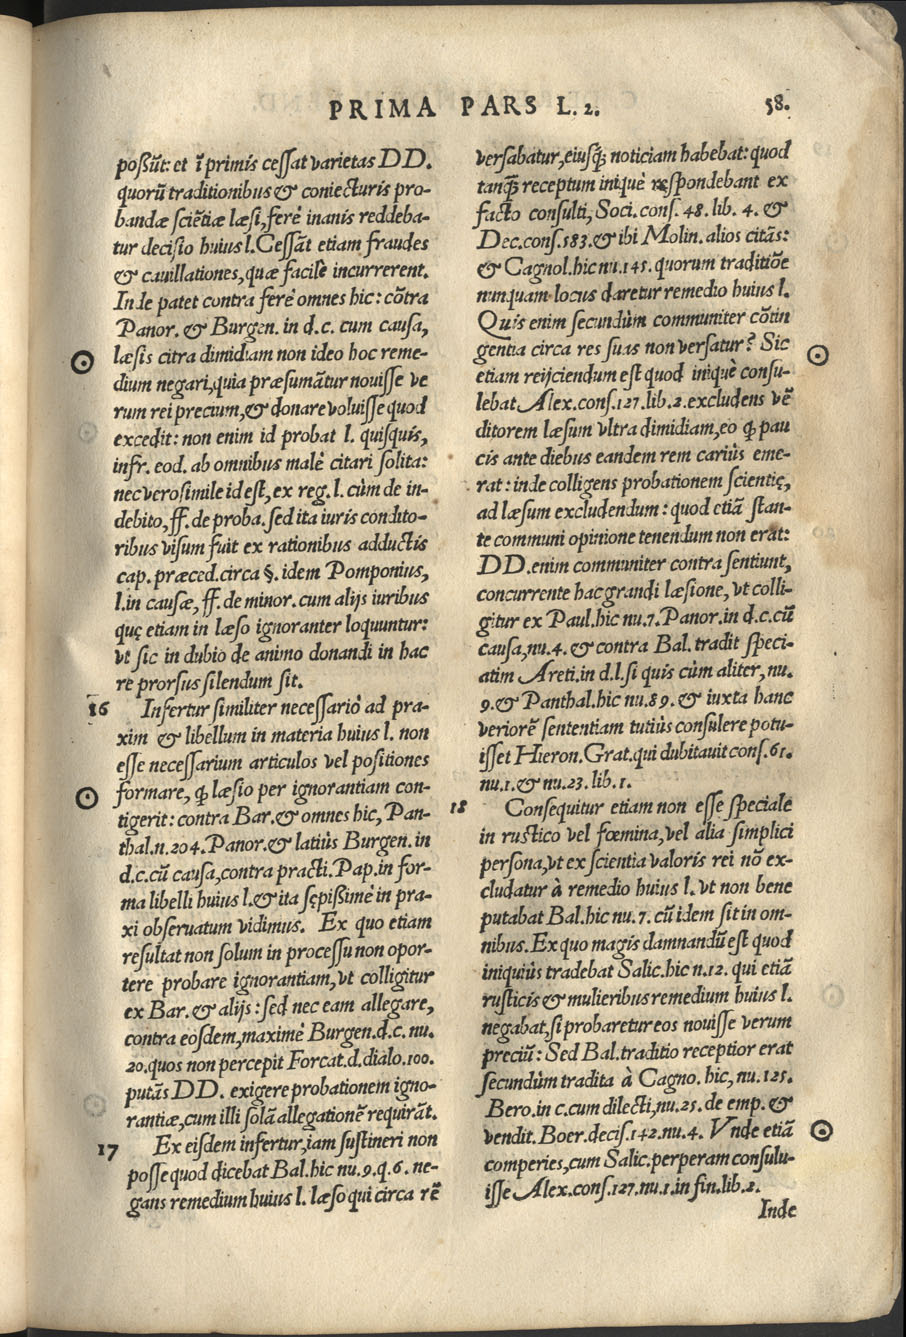 PRIMA PARS L. 2. 58.
poßũt: et ĩ primis ceſſat varietas DD.
quorũ traditionibus & coniecturis pro-
bandæ ſciẽtiæ læſi, ferè inanis reddeba-
tur deciſio huius l. Ceſſãt etiam fraudes
& cauillationes, quæ facilè incurrerent.
Inde patet contra ferè omnes hic: cõtra
Panor. & Burgen. in d. c. cum cauſa,
læſis citra dimidiam non ideo hoc reme-
dium negari, quia præſumãtur nouiſſe ve
rum rei precium, & donare voluiſſe quod
excedit: non enim id probat l. quiſquis,
infr. eod. ab omnibus malè citari ſolita:
nec veroſimile id eſt, ex reg. l. cùm de in-
debito, ff. de proba. ſed ita iuris condito-
ribus viſum fuit ex rationibus adductis
cap. præced. circa §. idem Pomponius,
l. in cauſæ, ff. de minor. cum alijs iuribus
quę etiam in læſo ignoranter loquuntur:
vt ſic in dubio de animo donandi in hac
re prorſus ſilendum ſit.
16 Infertur ſimiliter neceſſariò ad pra-
xim & libellum in materia huius l. non
eſſe neceſſarium articulos vel poſitiones
formare, ꝙ læſio per ignorantiam con-
tigerit: contra Bar. & omnes hic, Pan-
thal. n. 204. Panor. & latiùs Burgen. in
d. c. cũ cauſa, contra practi. Pap. in for-
ma libelli huius l. & ita ſępißimè in pra-
xi obſeruatum vidimus. Ex quo etiam
reſultat non ſolum in proceſſu non opor-
tere probare ignorantiam, vt colligitur
ex Bar. & alijs: ſed nec eam allegare,
contra eoſdem, maximè Burgen. d. c. nu.
20. quos non percepit Forcat. d. dialo. 100.
putãs DD. exigere probationem igno-
rantiæ, cum illi ſolã allegationẽ requirãt.
17 Ex eiſdem infertur, iam ſuſtineri non
poſſe quod dicebat Bal. hic nu. 9. q. 6. ne-
gans remedium huius l. læſo qui circa rẽ
verſabatur, eiuſꝗ̃ noticiam habebat: quod
tanꝗ̃ receptum iniquè reſpondebant ex
facto conſulti, Soci. conſ. 48. lib. 4. &
Dec. conſ. 583. & ibi Molin. alios citãs:
& Cagnol. hic nu. 145. quorum traditiõe
nunquam locus daretur remedio huius l.
Quis enim ſecundùm communiter cõtin
gentia circa res ſuas non verſatur? Sic
etiam reijciendum eſt quod iniquè conſu-
lebat Alex. conſ. 127. lib. 2. excludens vẽ
ditorem læſum vltra dimidiam, eo ꝙ pau
cis ante diebus eandem rem cariùs eme-
rat: inde colligens probationem ſcientię,
ad læſum excludendum: quod etiã ſtan-
te communi opinione tenendum non erat:
DD. enim communiter contra ſentiunt,
concurrente hac grandi læſione, vt colli-
gitur ex Paul. hic nu. 7. Panor. in d. c. cũ
cauſa, nu. 4. & contra Bal. tradit ſpeci-
atim Areti. in d. l. ſi quis cùm aliter, nu.
9. & Panthal. hic nu. 89. & iuxta hanc
veriorẽ ſententiam tutiùs conſulere potu-
iſſet Hieron. Grat. qui dubitauit conſ. 61.
nu. 1. & nu. 23. lib. 1.
18 Conſequitur etiam non eſſe ſpeciale
in ruſtico vel fœmina, vel alia ſimplici
perſona, vt ex ſcientia valoris rei nõ ex-
cludatur à remedio huius l. vt non bene
putabat Bal. hic nu. 7. cũ idem ſit in om-
nibus. Ex quo magis damnandũ eſt quod
iniquiùs tradebat Salic. hic n. 12. qui etiã
ruſticis & mulieribus remedium huius l.
negabat, ſi probaretur eos nouiſſe verum
preciũ: Sed Bal. traditio receptior erat
ſecundùm tradita à Cagno. hic, nu. 125.
Bero. in c. cum dilecti, nu. 25. de emp. &
vendit. Boer. deciſ. 142. nu. 4. Vnde etiã
comperies, cum Salic. perperam conſulu-
iſſe Alex. conſ. 127. nu. 1. in fin. lib. 2.
Inde